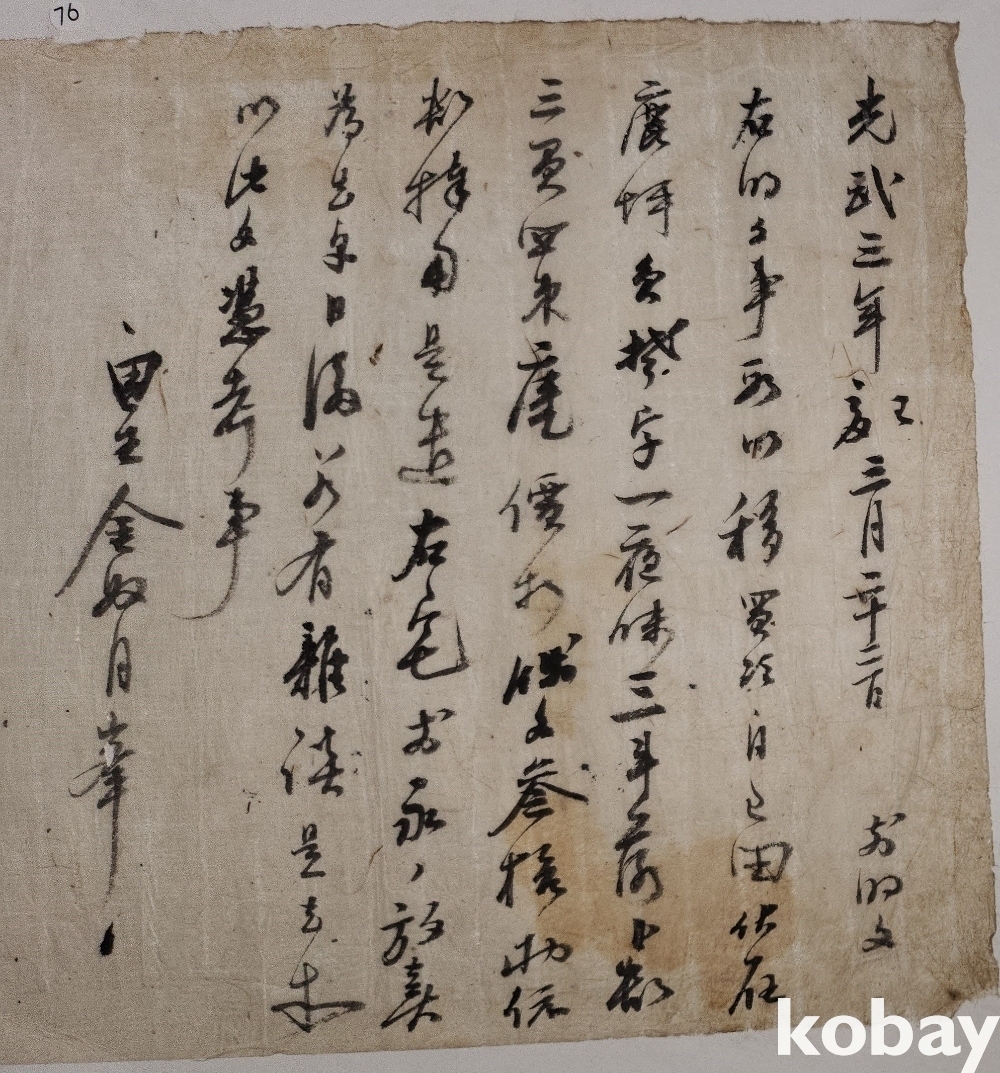 76
光武三年己亥三月二十二日 前明文
右明文事段以移買次自己田伏在
坪員字一夜味三斗落卜數
三負四束庫價折錢文參拾兩依
數捧用是遣右宅前永永放賣
爲去乎日後若有雜談是去等
以此文憑考事
田主金奴月
kobay